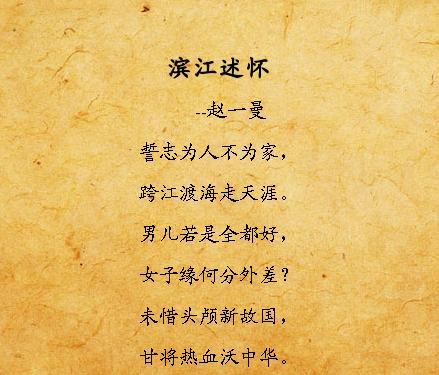 滨江述怀
--赵一曼
誓志为人不为家，
跨江渡海走天涯。
男儿若是全都好，
女子缘何分外差？
未惜头颅新故国，
甘将热血沃中华。